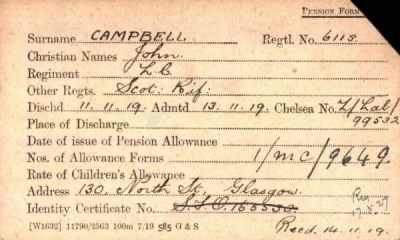 PENSION FORM
Surname CAMPBELL. Regtl. No. 6113
Christian Names John
Regiment L.C.
Other Regts. Scot: Rif:
Dischd 11.11.19. Admtd 13.11.19. Chelsea No. L/Lab/
99532
Place of Discharge
Date of issue of Pension Allowance
Nos. of Allowance Forms 1/MC/9649.
Rate of Children's Allowance
Address 130, North St, Glasgow.
Identity Certificate No. S.S.O. 165530.
Recd. 14.11.19.
[W1632] 11790/2563 100m 7/19 585 G & S